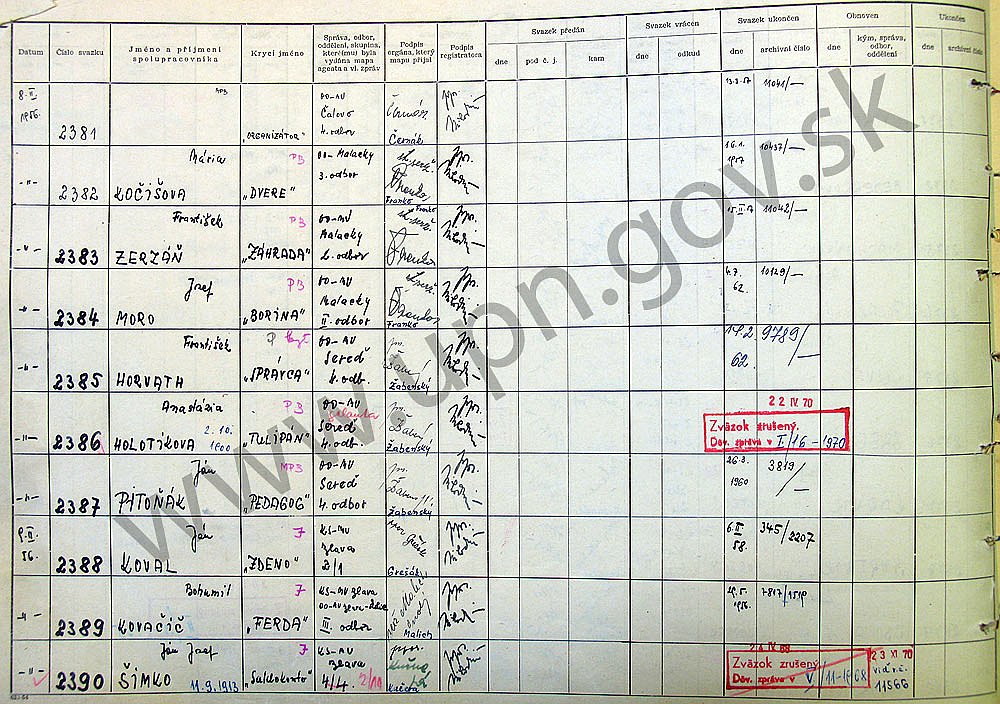 Datum
Číslo svazku
Jméno a příjmení
spolupracovníka
Krycí jméno
Správa, odbor,
oddělení, skupina,
kterému(é) byla
vydána mapa
agenta a vl. zpráv
Podpis
orgána, který
mapu přijal
Podpis
registrátora
Svazek předán
dne
pod č. j.
kam
Svazek vrácen
dne
odkud
Svazek ukončen
dne
archivní číslo
Obnoven
dne
kým, správa,
odbor,
oddělení
Ukončen
dne
archivní číslo
8.II.
1956.
2381
MPB
„ORGANIZÁTOR"
OO-MV
Čalovo
4. odbor
Černák
13.2.57
11041/—
-"-
2382
Mária
KOČIŠOVA
PB
„DVERE"
OO-Malacky
3. odbor
Franko
16.1.
1957
10437/—
-"-
2383
František
ZERZÁŇ
PB
„ZÁHRADA"
OO-MV
Malacky
2. odbor
Franko
15.II.57
11042/—
-"-
2384
Jozef
MORO
PB
„BORINA"
OO-MV
Malacky
II. odbor
Franko
4.7.
62.
10129/—
-"-
2385
František
HORVATH
P byt
„SPRÁVCA"
OO-MV
Sereď
4. odb.
Žabenský
14.2.
62.
9789/—
-"-
2386
Anastázia
HOLOTÍKOVA
2.10.
1900
PB
„TULIPÁN"
OO-MV
Galanta
Sereď
4. odb.
Žabenský
22 IV. 70
Zväzok zrušený.
Dôv. zpráva v I/16-1970
-"-
2387
Ján
PITOŇÁK
MPB
„PEDAGOG"
OO-MV
Sereď
4. odbor
Žabenský
26.3.
1960
3819/—
9.II.
56.
2388
Ján
KOVAL
I
„ZDENO"
KS-MV
Žilava
2/1
Grešák
6.II.
58.
345/2207
-"-
2389
Bohumil
KOVAČIČ
I
„FERDA"
III. odbor
Malich
29.5.
1956.
7817/1519
-"-
2390
Ján Jozef
ŠIMKO
11.9.1913
I
„Saldokonto"
KS-MV
Žilava
4/4.
Kučta
24 IV 68
Zväzok zrušený.
Dôv. zpráva v V/11-1968
23 XI 70
viď r.č.
11566
www.upn.gov.sk